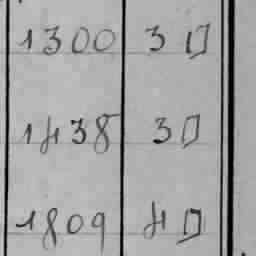 1300 3 □
1438 3 □
1809 4 □